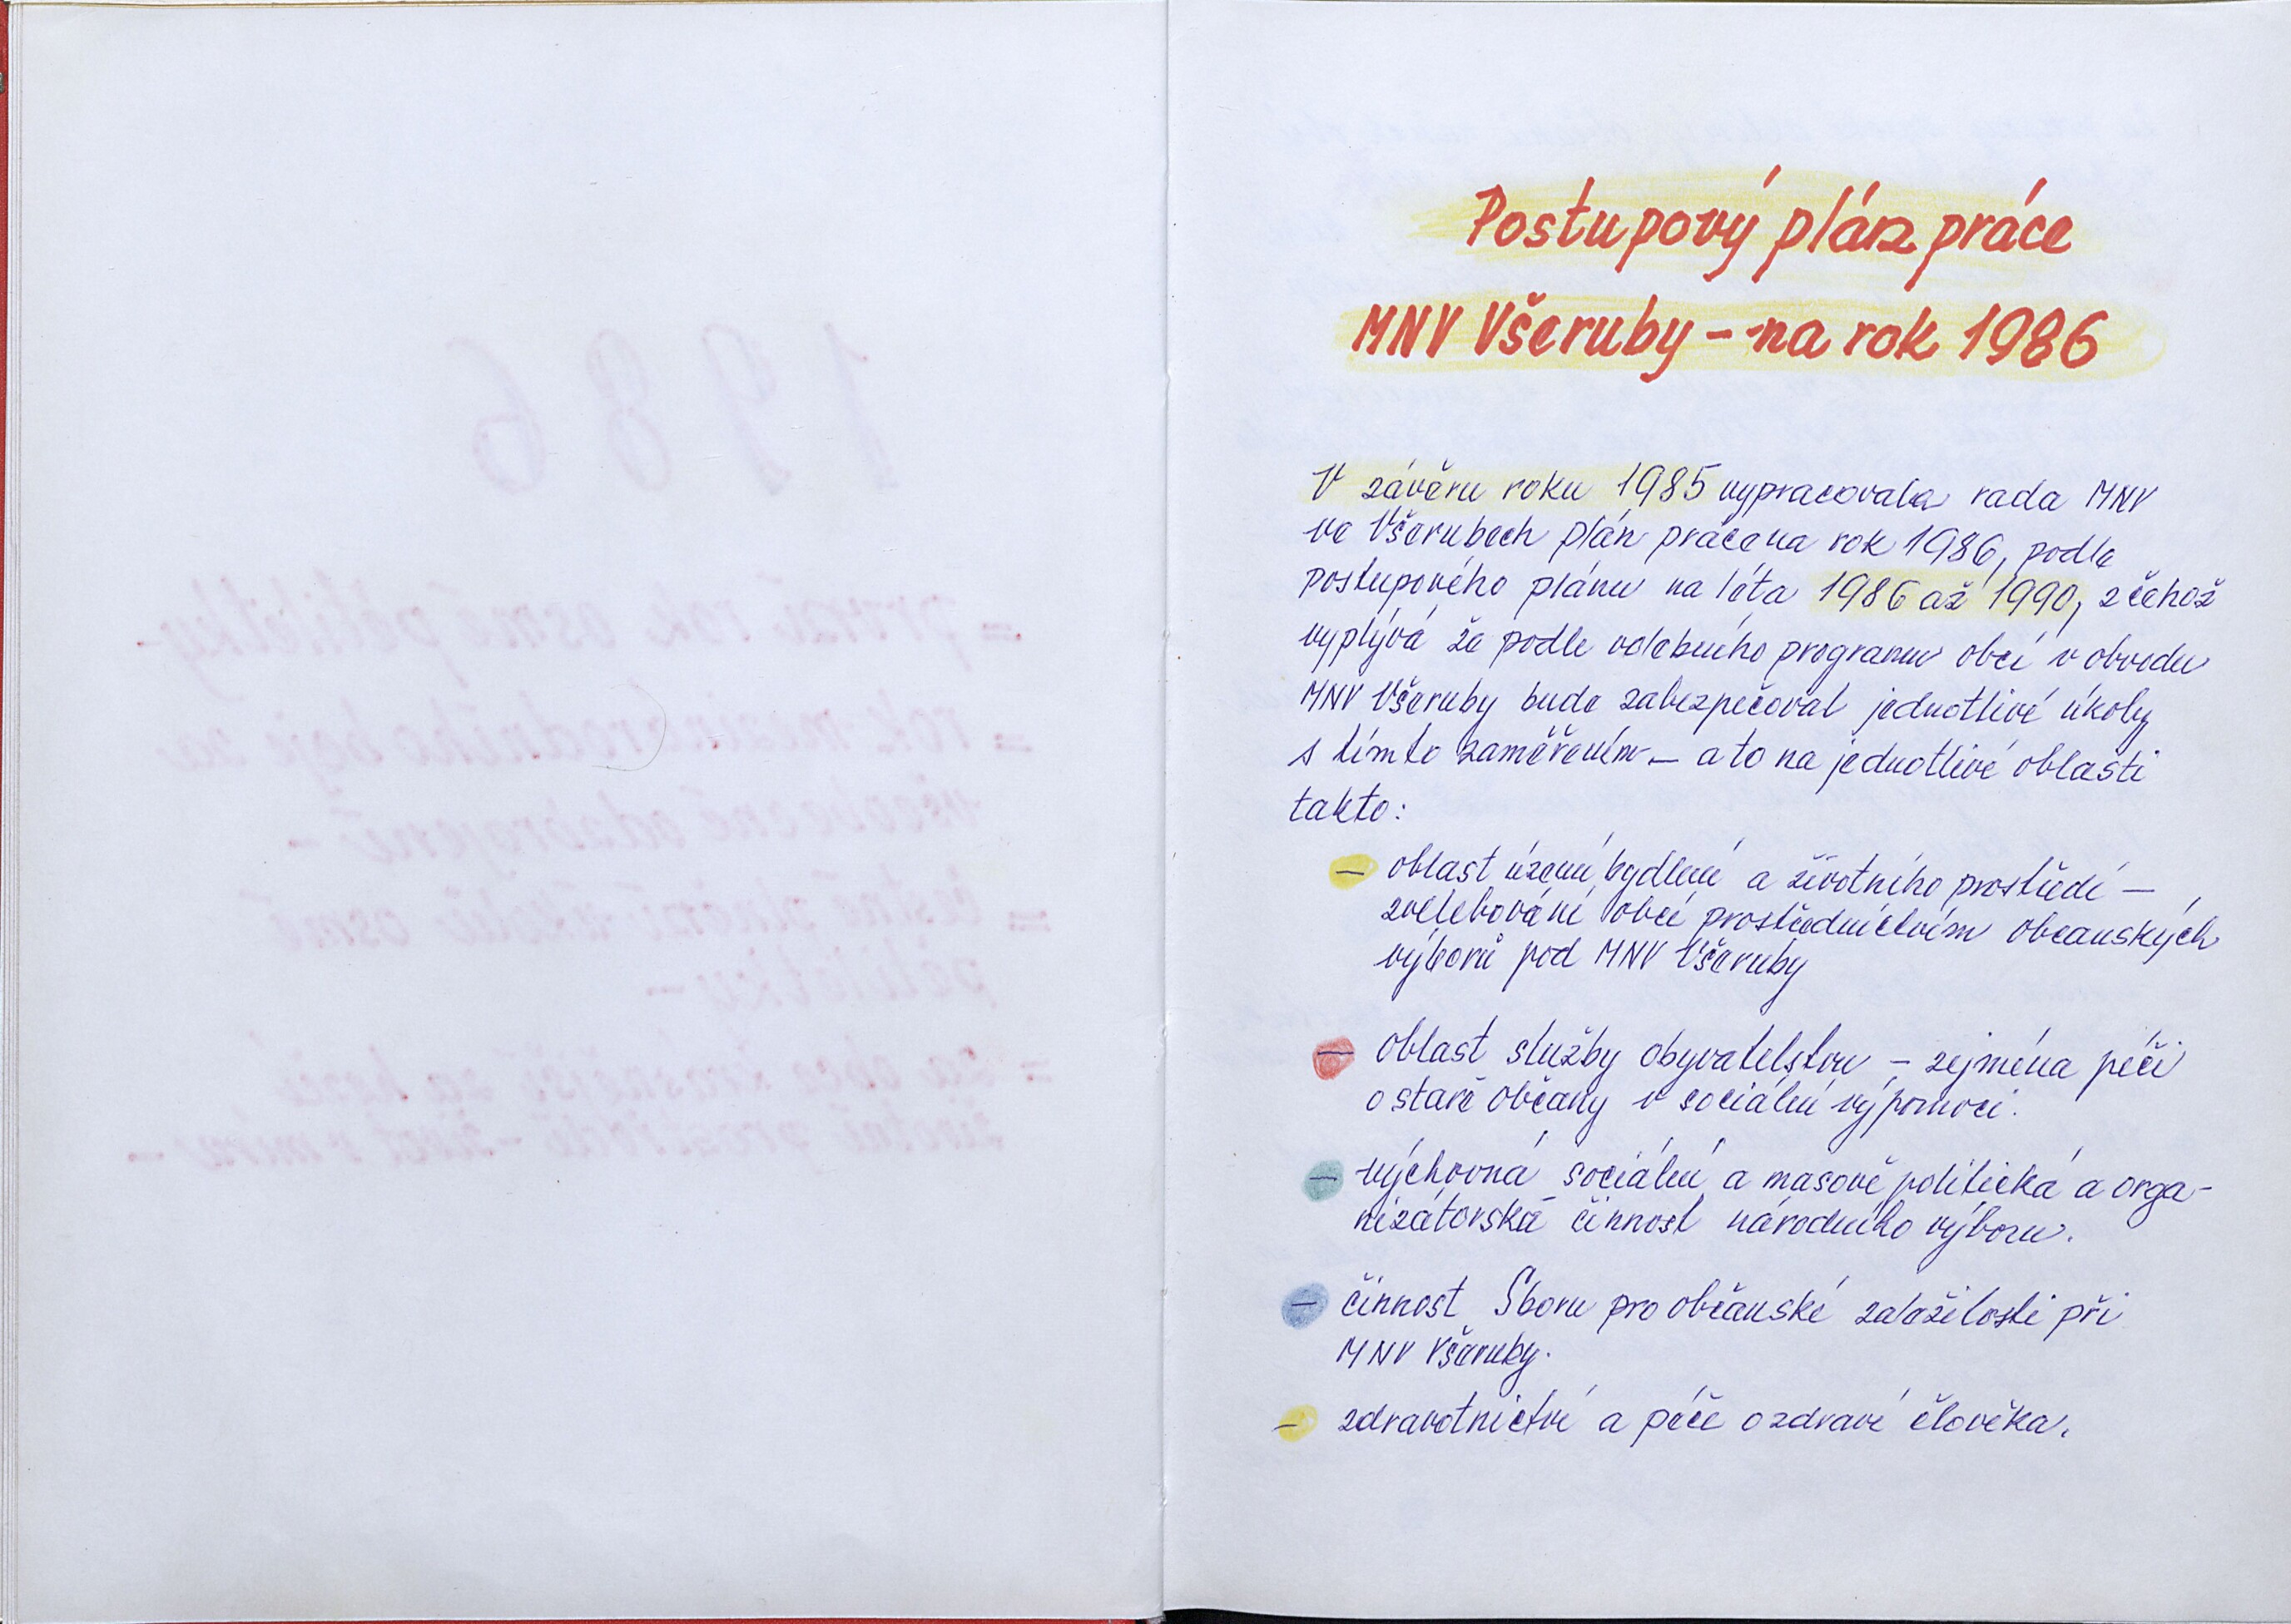 Postupový plán práce
MNV Všeruby – na rok 1986
V závěru roku 1985 vypracovala rada MNV
ve Všerubech plán práce na rok 1986, podle
postupového plánu na léta 1986 až 1990, z čehož
vyplývá že podle volebního programu obcí v obvodu
MNV Všeruby bude zabezpečovat jednotlivé úkoly
s tímto zaměřením – a to na jednotlivé oblasti
takto:
– oblast území, bydlení a životního prostředí –
zvelebování obcí prostřednictvím občanských
výborů pod MNV Všeruby
– oblast služby obyvatelstvu – zejména péči
o staré občany v sociální výpomoci.
– výchovná sociální a masově politická a orga-
nizátorská činnost národního výboru.
– činnost Sboru pro občanské záležitosti při
MNV Všeruby.
– zdravotnictví a péče o zdraví člověka.